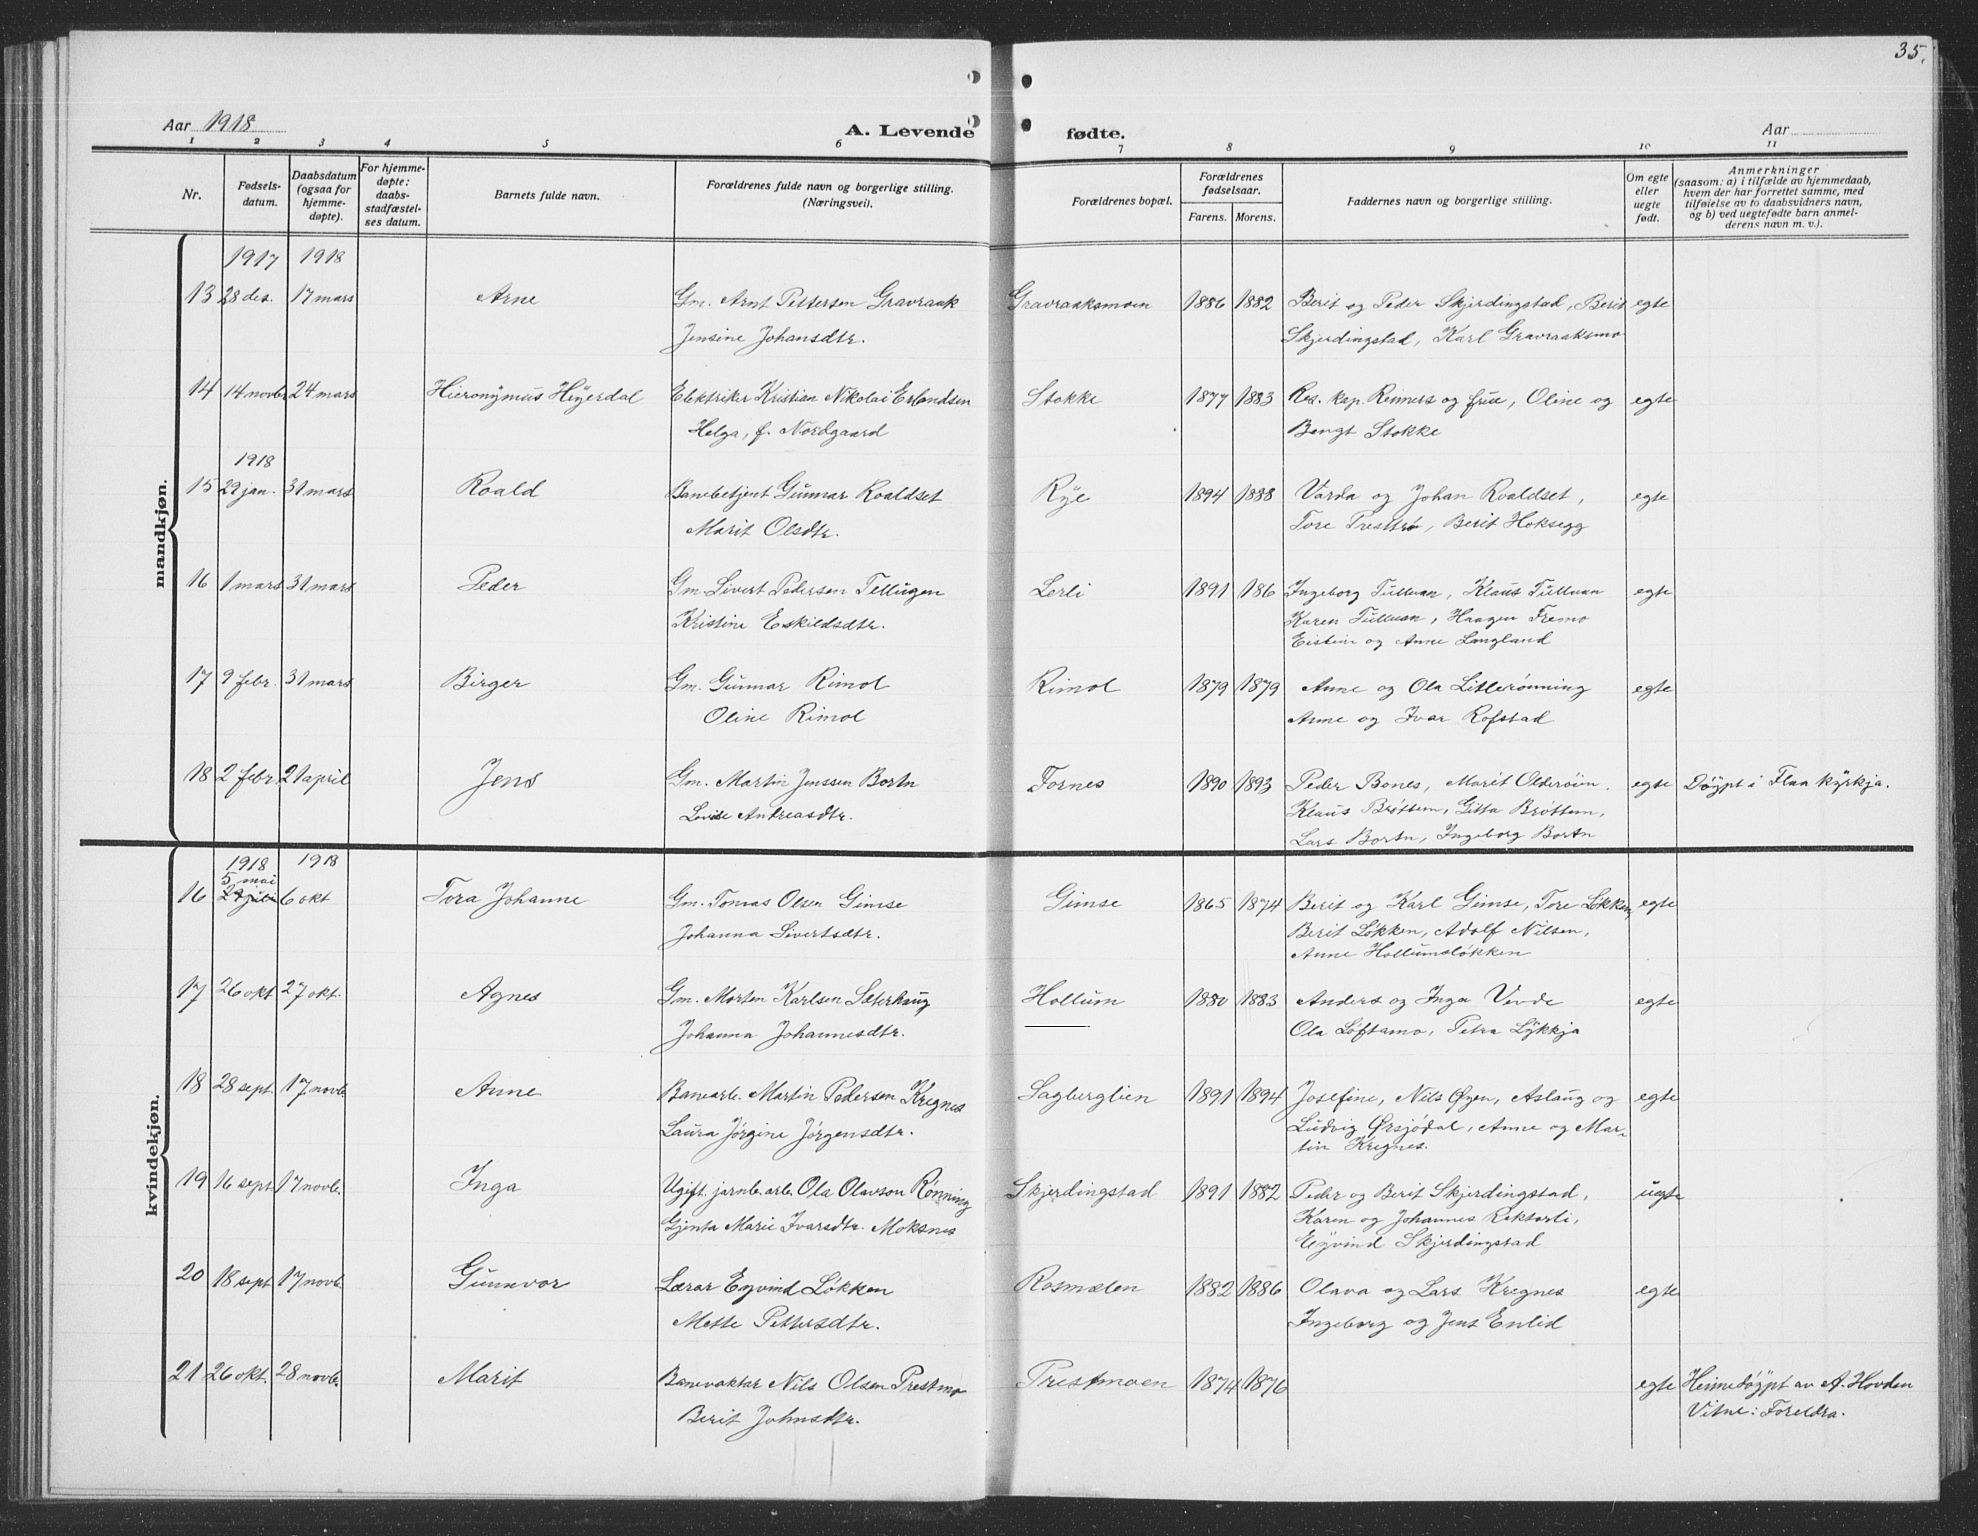 35.
Aar 1918
A. Levende fødte.
Aar
1 2 3 4 5 6 7 8 9 10 11
Nr.
Fødsels-
datum.
Daabsdatum
(ogsaa for
hjemme-
døpte).
For hjemme-
døpte:
daabs-
stadfæstel-
ses datum.
Barnets fulde navn.
Forældrenes fulde navn og borgerlige stilling.
(Næringsvei).
Forældrenes bopæl.
Forældrenes
fødselsaar.
Farens. Morens.
Faddernes navn og borgerlige stilling.
Om egte
eller
uegte
født.
Anmerkninger
(saasom: a) i tilfælde av hjemmedaab,
hvem der har forrettet samme, med
tilføielse av to daabsvidners navn,
og b) ved uegtefødte barn anmel-
derens navn m. v.).
mandkjøn.
1917 1918
13 28 des. 17 mars Arne Gm. Arnt Pettersen Gravraak Gravraaksmoen 1886 1882 Berit og Peder Skjerdingstad, Berit egte
Jensine Johansdtr. Skjerdingstad, Karl Gravraaksmo
14 14 novbr 24 mars Hieronymus Heyerdal Elektriker Kristian Nikolai Erlandsen Stokke 1877 1883 Res. kap. Rinners og frue, Oline og egte
Helga, f. Nordgaard Bengt Stokke
1918
15 29 jan. 31 mars Roald Banebetjent Gunnar Roaldset Rye 1894 1888 Varda og Johan Roaldset, egte
Marit Olsdtr. Tore Presttrø, Berit Hoksegg
16 1 mars 31 mars Peder Gm. Sivert Pedersen Tellugen Lerli 1891 186 Ingeborg Tulluan, Klaus Tulluan egte
Kristine Eskildsdtr. Karen Tulluan, Haagen Fremo
Eistein og Anne Langland
17 9 febr. 31 mars Birger Gm. Gunnar Rimol Rimol 1879 1879 Anne og Ola Litlerønning egte
Oline Rimol Anne og Ivar Rofstad
18 2 febr. 21 april Jens Gm. Martin Jenssen Bortn Fornes 1890 1893 Peder Bones, Marit Olderøien. egte Døypt i Flaa kyrkja.
Lovise Andreasdtr. Klaus Brøttem, Gitta Brøttem,
Lars Bortn, Ingeborg Bortn
kvindekjøn.
1918 1918
5 mai
16 29 juli 6 okt Tora Johanne Gm. Tomas Olsen Gimse Gimse 1865 1874 Berit og Karl Gimse, Tore Løkken, egte
Johanna Sivertsdtr. Berit Løkken, Adolf Nilsen,
Anne Hollumsløkken
17 26 okt 27 okt. Agnes Gm. Morten Karlsen Sæterhaug Hollum 1880 1883 Anders og Inga Vevde egte
Johanna Johannesdtr. Ola Løftamo, Petra Lykkja
18 28 sept. 17 novbr. Anne Banearb. Martin Pedersen Kregnes Sagberglien 1891 1894 Josefine, Nils Øyen, Aslaug og egte
Laura Jørgine Jørgensdtr. Ludvig Ørsjødal, Anne og Mar-
tin Kregnes.
19 16 sept. 17 novbr. Inga Ugift. jarnb.arb. Ola Olavson Rønning Skjerdingstad 1891 1882 Peder og Berit Skjerdingstad, uegte
Gjenta Marie Ivarsdtr. Moksnes Karen og Johannes Rektorli,
Eyvind Skjerdingstad
20 18 sept 17 novb. Gunnvor Lærar Eyvind Løkken Rosmælen 1882 1886 Olava og Lars Kregnes egte
Mette Pettersdtr. Ingeborg og Jens Enlid
21 26 okt. 28 novb. Marit Banevaktar Nils Olsen Prestmo Prestmoen 1874 1876 egte Heimedøypt av A. Hovden
Berit Johnsdtr. Vitne: Foreldra.